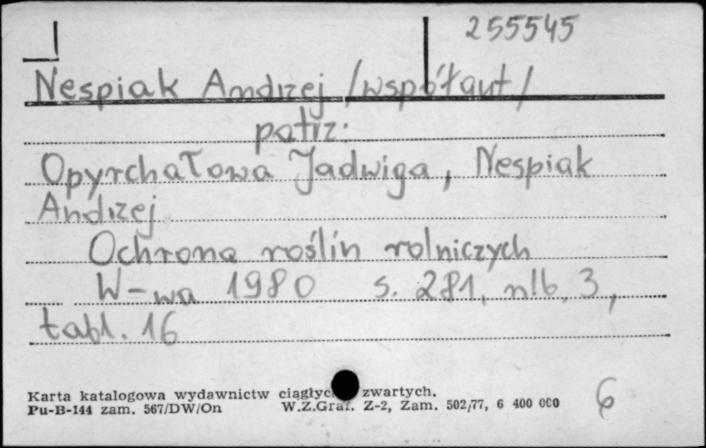 255545
Nespiak Andrzej /współaut/
patrz:
Opyrchałowa Jadwiga, Nespiak
Andrzej
Ochrona roślin rolniczych
W-wa 1980 s. 281, nlb. 3,
tabl. 16
Karta katalogowa wydawnictw ciągłyc zwartych.
Pu-B-144 zam. 567/DW/On W.Z.Graf. Z-2, Zam. 502/77, 6 400 000
6